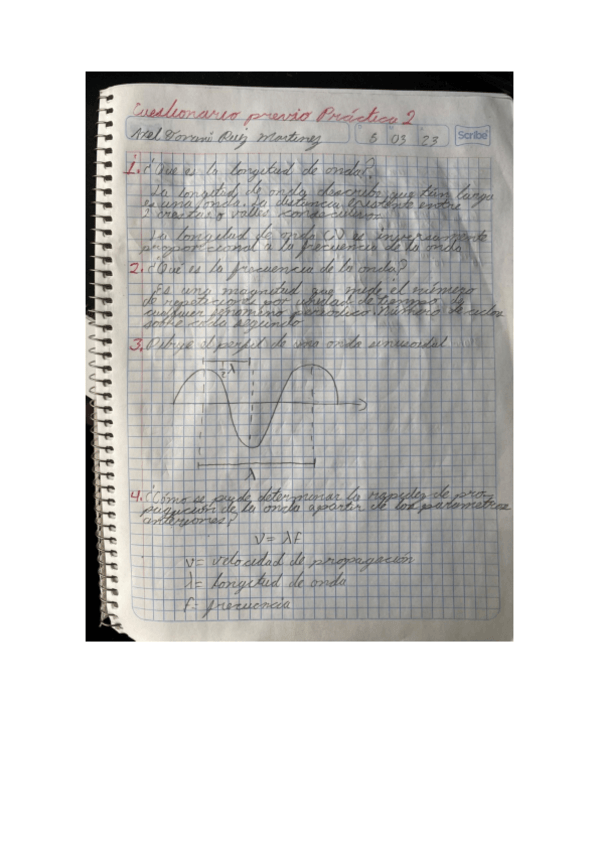 Cuestionario previo Práctica 2
Axel Yovani Ruiz Martinez 5 03 23 Scribe
1. ¿Que es la longitud de onda?
La longitud de onda describe que tan larga
es una onda. La distancia existente entre
2 crestas o valles consecutivos
La longitud de onda (λ) es inversamente
proporcional a la frecuencia de la onda
2. ¿Qué es la frecuencia de la onda?
Es una magnitud que mide el número
de repeticiones por unidad de tiempo de
cualquier fenomeno periodico. Número de ciclos
sobre cada segundo
3. Dibuje el perfil de una onda sinusoidal
λ
λ
4. ¿Cómo se puede determinar la rapidez de pro-
pagación de la onda apartir de los parametros
anteriores?
V= λf
v= velocidad de propagación
λ= longitud de onda
f= frecuencia